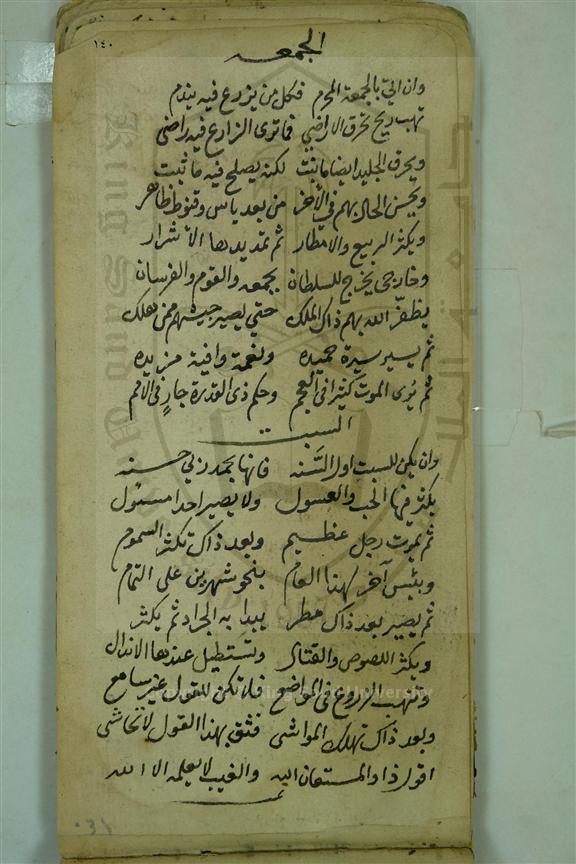 ١٤٠
الجمعه
وان اتى بالجمعة المحرم فكل من يزرع فيه يندم
تهب ريح تحرق الاراضي فما ترى الزارع فيه راضى
ويحرق الجليد ايضا ما نبت لكنه يصلح فيه ما ثبت
ويحسن الحال بهم في الآخر من بعد ياس وقنوط ظاهر
ويكثر الربيع والامطار ثم تمد يدها الأشرار
وخارجى يخرج للسلطان بجمعه والقوم والفرسان
يظفر الله بهم ذاك الملك حتى يصير جيشهم ممن هلك
ثم يسير سيرة حميده ونعمة وافية مزيده
ثم يُرى الموت كثيرا في العجم وحكم ذى القدرة جارٍ في الامم
السبت
وان يكن للسبت اول السَّنه فانها بحمد ربي حسنه
يكثر فيها الحب والعسول ولا يصير احدا مسئول
ثم يموت رجل عظيم وبعد ذاك تكثر السموم
وبئس آخر لهذا العام بنحو شهرين على التمام
ثم يصير بعد ذاك مطر يبدا به الجراد ثم يكثر
ويكثر اللصوص والقتال وتستطيل عندها الاندال
وتهب الزروع في المواضع فلا تكن للقول غير سامع
وبعد ذاك تهلك المواشى فثق بهذا القول لا تحاشى
اقول ذا والمستعان الله والغيب لا يعلمه الا الله